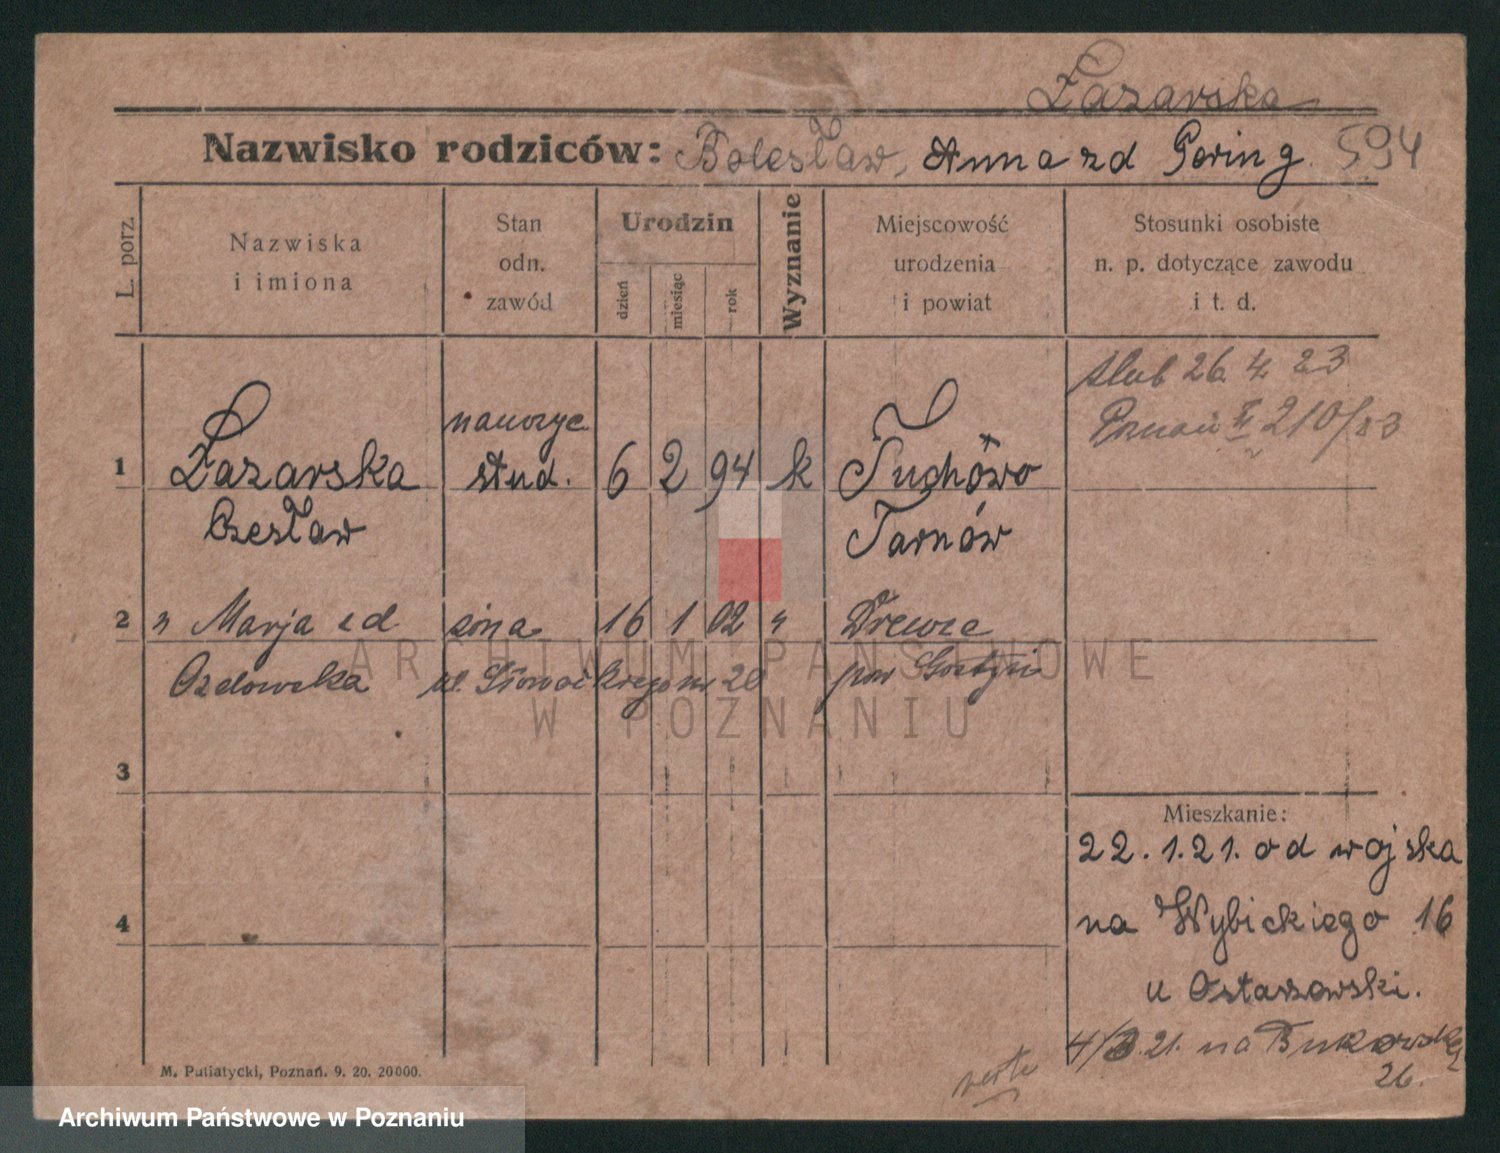 Łazarska
Nazwisko rodziców: Bolesław, Anna zd Pering. 594
L. porz.
Nazwiska
i imiona
Stan
odn.
zawód
Urodzin
dzień
miesiąc
rok
Wyznanie
Miejscowość
urodzenia
i powiat
Stosunki osobiste
n. p. dotyczące zawodu
i t. d.
ślub 26. 4. 23
Poznań II 210/23
1 Łazarska stud. 6 2 94 k Tuchów
Czesław Tarnów
2 Marja zd żona 16 1 02 Drzewce
ul. Słowackiego nr 20 pow Gostyń
3
4
Mieszkanie:
22.1.21. od wojska
na Wybickiego 16
u Ostaszewski.
21. na Bukowską
26.
M. Putiatycki, Poznań. 9. 20. 20000.
ARCHIWUM PAŃSTWOWE
W POZNANIU
Archiwum Państwowe w Poznaniu